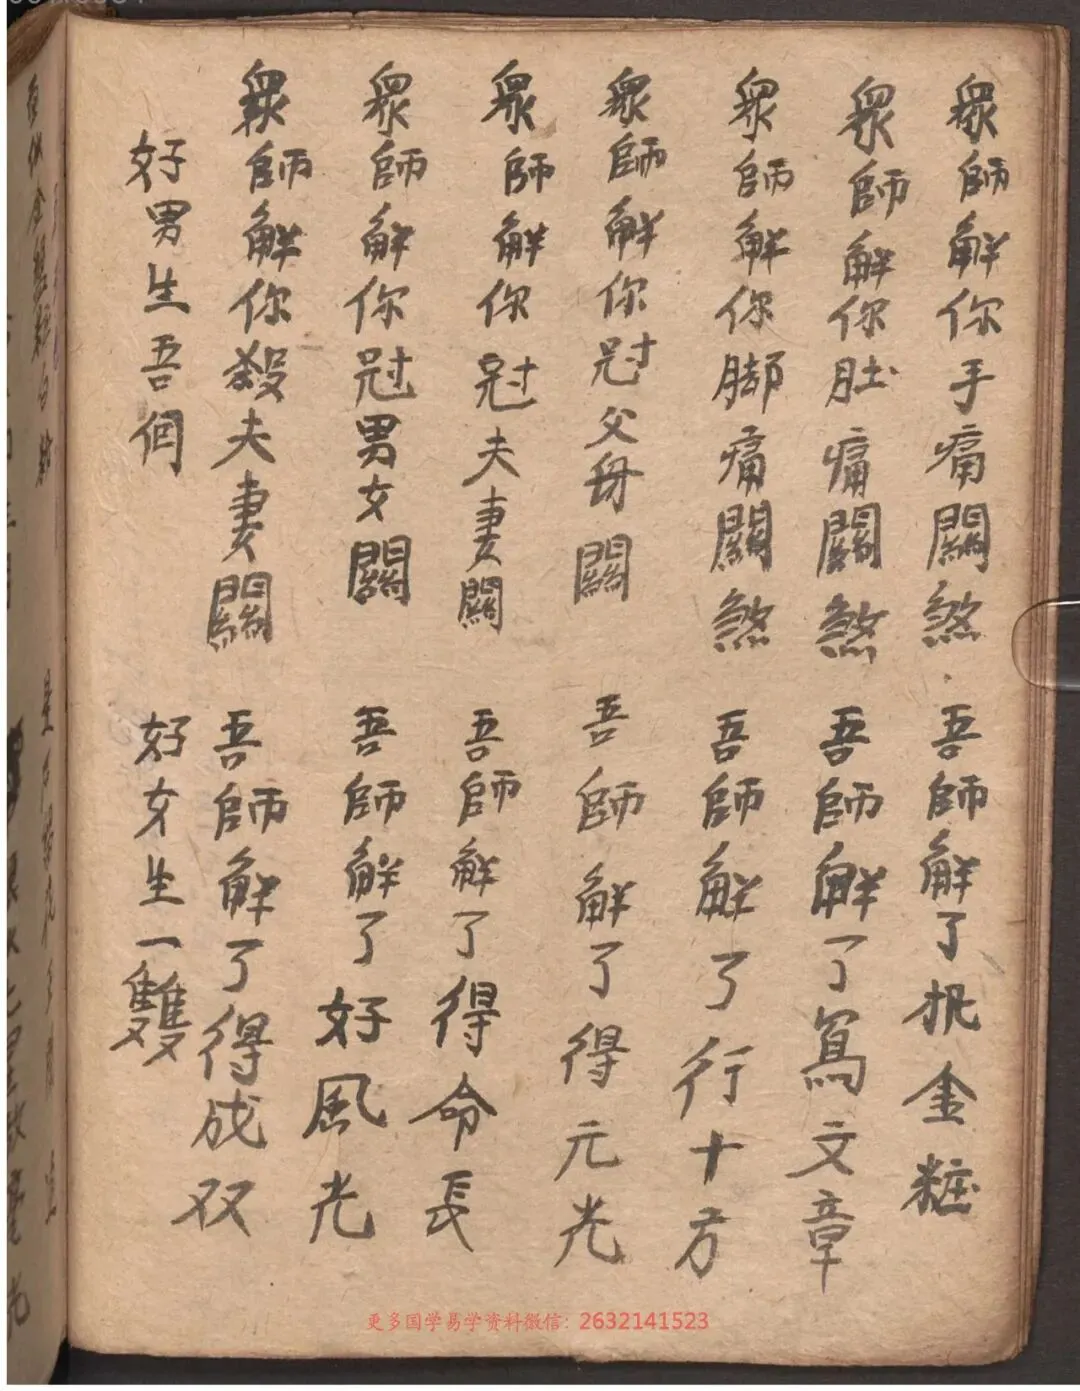 眾師解你手痛關煞 吾師解了抓金粧
眾師解你肚痛關煞 吾師解了寫文章
眾師解你脚痛關煞 吾師解了行十方
眾師解你冠父母關 吾師解了得元光
眾師解你冠夫妻關 吾師解了得命長
眾師解你冠男女關 吾師解了好風光
眾師解你殺夫妻關 吾師解了得成双
好男生吾個 好女生一雙
更多国学易学资料微信：2632141523